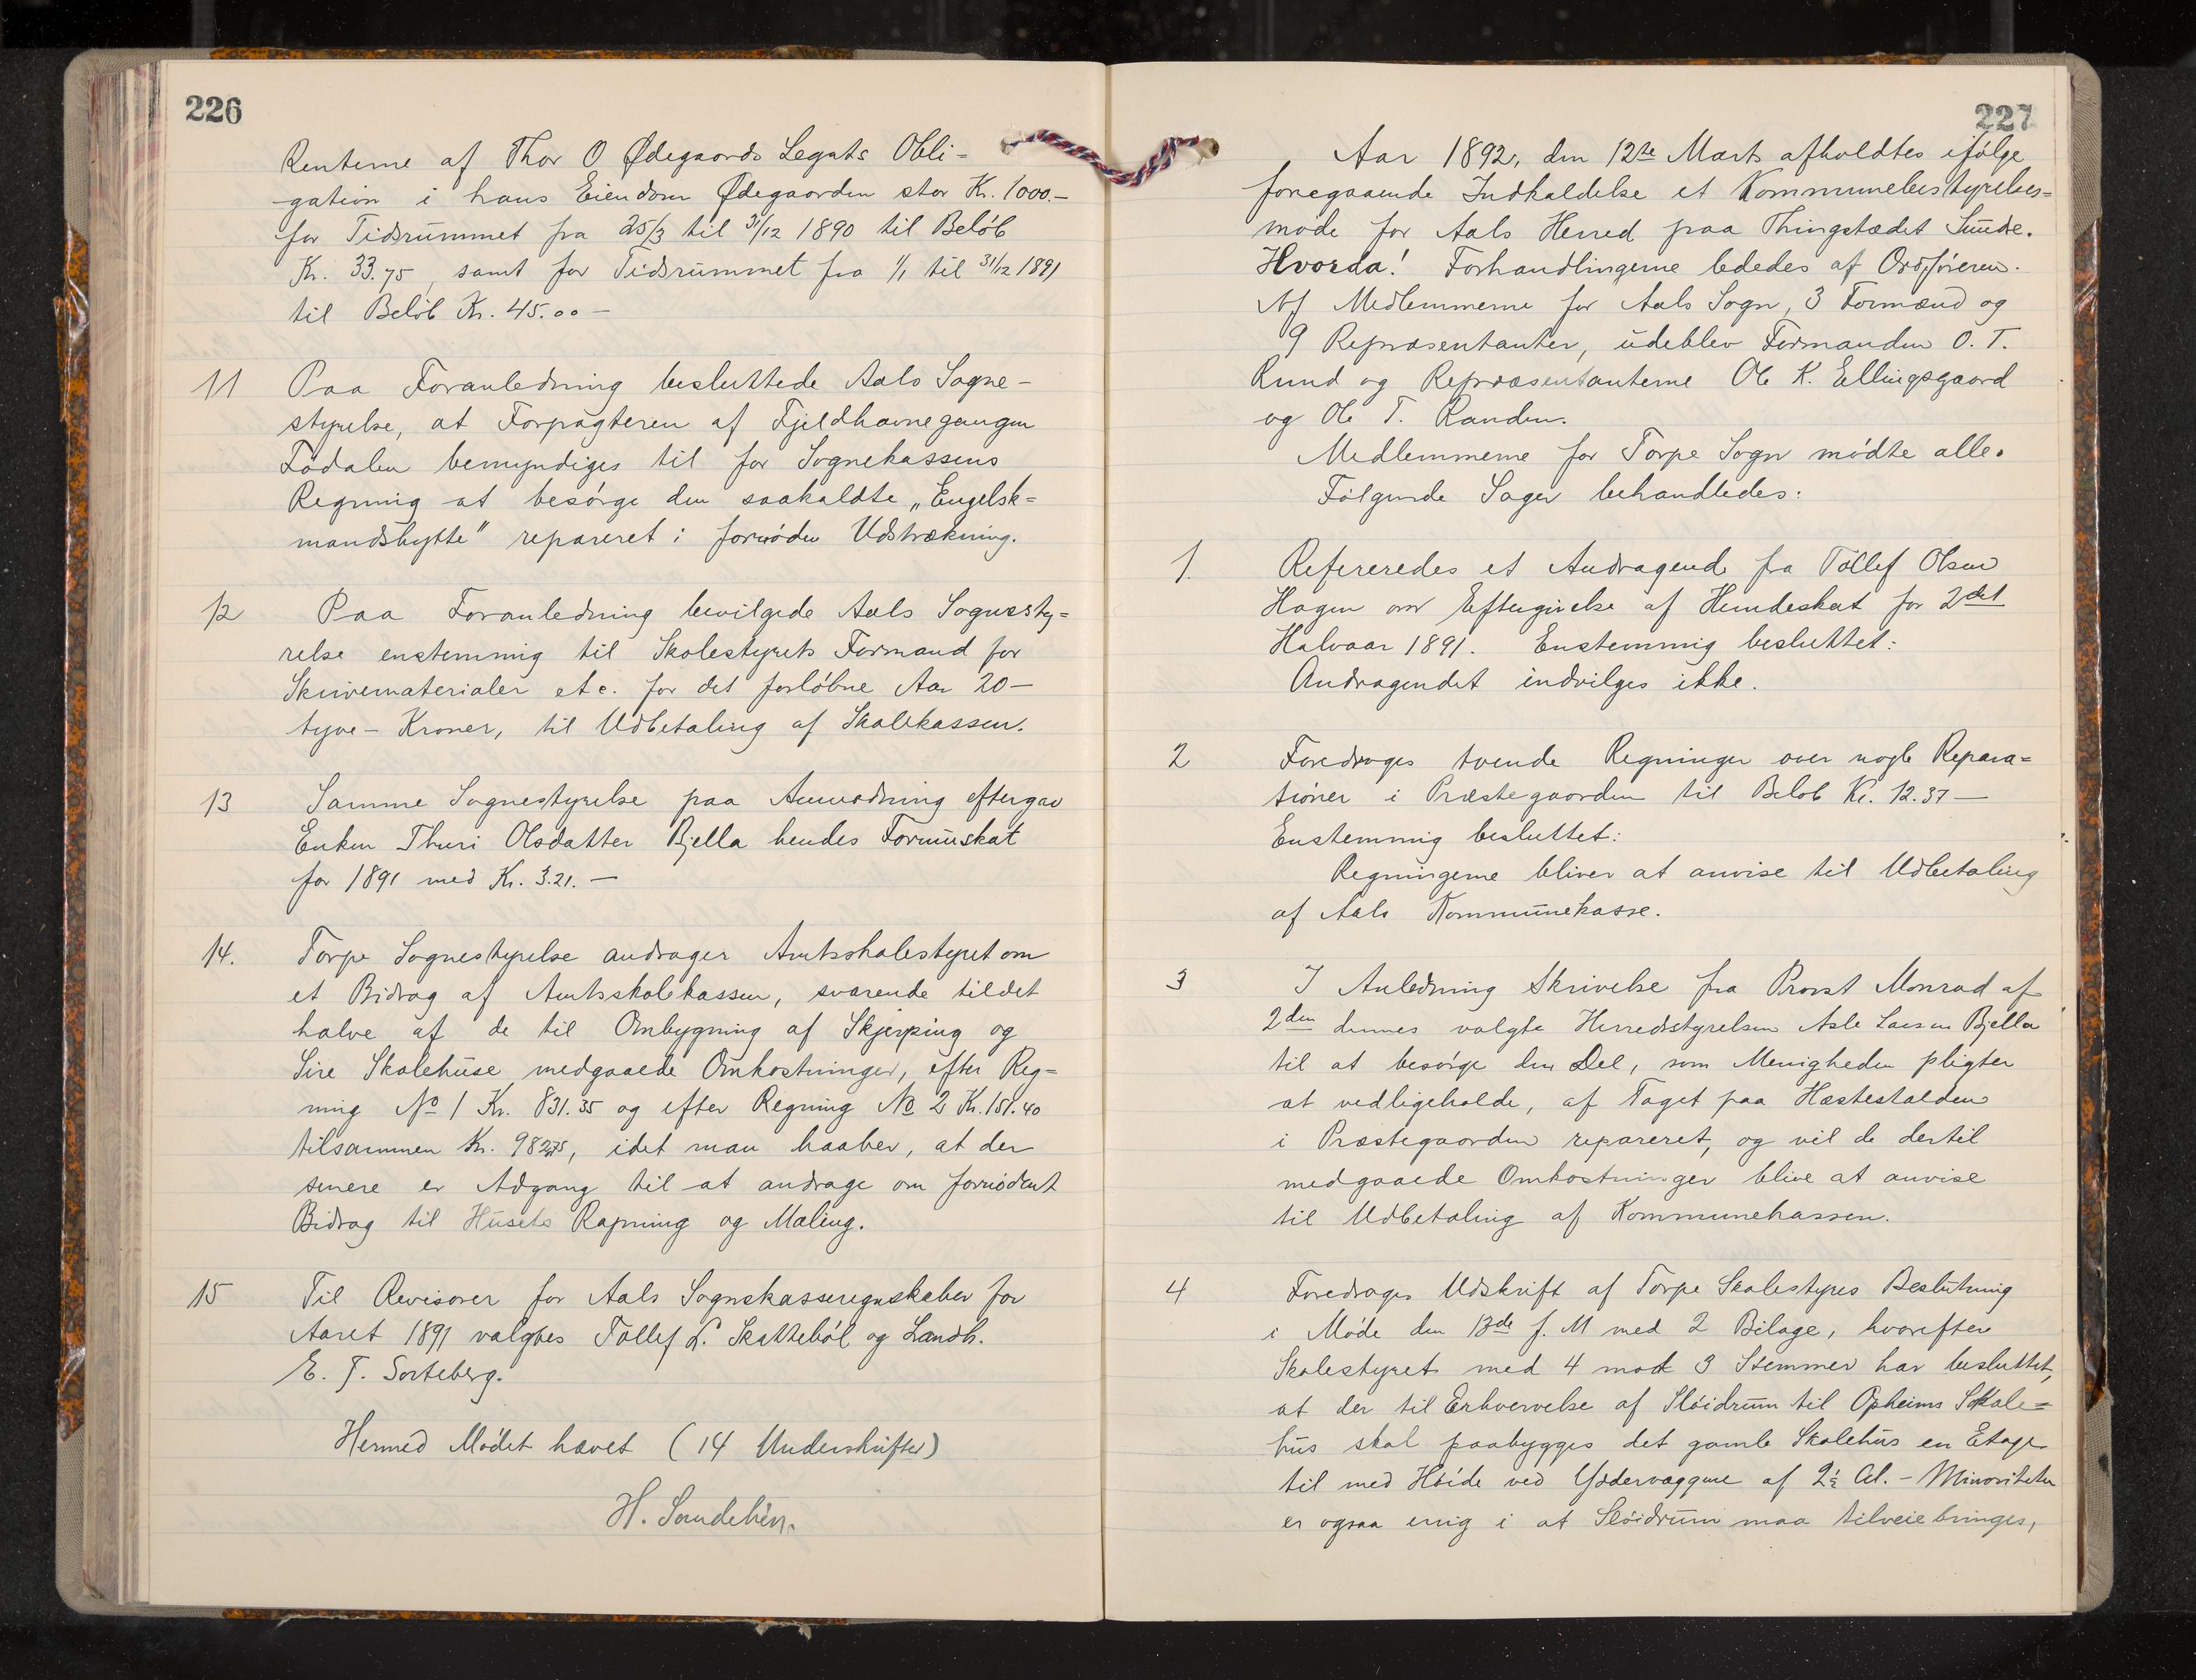 226
Renterne af Thor O Ødegaards Legats Obli-
gation i hans Eiendom Ødegaarden stor Kr. 1000.-
for Tidsrummet fra 25/3 til 31/12 1890 til Beløb
Kr. 33.75, samt for Tidsrummet fra 1/1 til 31/12 1891
til Beløb Kr. 45.00 -
11 Paa Foranledning besluttede Aals Sogne-
styrelse, at Forpagteren af Fjeldhavnegangen
Lødalen bemyndiges til for Sognekassens
Regning at besørge den saakaldte „Engelsk=
mandshytte" repareret i fornøden Udstrækning.
12 Paa Foranledning bevilgede Aals Sognesty=
relse enstemmig til Skolestyrets Formand for
Skrivematerialer etc. for det forløbne Aar 20-
tyve- Kroner, til Udbetaling af Skolekassen.
13 Samme Sognestyrelse paa Anmodning eftergav
Enken Thuri Olsdatter Bjella hendes Formuskat
for 1891 med Kr. 3.21. -
14. Torpe Sognestyrelse andrager Amtsskolestyret om
et Bidrag af Amtsskolekassen, svarende til det
halve af de til Ombygning af Skjerping og
Sire Skolehuse medgaaede Omkostninger, efter Reg=
ning No 1 Kr. 831.35 og efter Regning No 2 Kr. 151.40
tilsammen Kr. 982.75, idet man haaber, at der
senere er Adgang til at andrage om fornødent
Bidrag til Husets Rapning og Maling.
15 Til Revisorer for Aals Sognskasseregnskaber for
Aaret 1891 valgtes Tollef L. Skattebøl og Landh.
E. T. Sorteberg.
Hermed Mødet hævet (14 Underskrifter)
H. Sundehen.
227
Aar 1892, den 12te Marts afholdtes ifølge
foregaaende Indkaldelse et Kommunebestyrelses=
møde for Aals Herred paa Thingstædet Sunde.
Hvorda! Forhandlingerne lededes af Ordføreren.
Af Medlemmerne for Aals Sogn, 3 Formænd og
9 Repræsentanter, udeblev Formanden O. T.
Rund og Repræsentanterne Ole K. Ellingsgaard
og Ole T. Randen.
Medlemmerne for Torpe Sogn mødte alle.
Følgende Sager behandledes:
1. Refereredes et Andragende fra Tollef Olsen
Hagen om Eftergivelse af Hundeskat for 2det
Halvaar 1891. Enstemmig besluttet:
Andragendet indvilges ikke.
2 Foredroges tvende Regninger over nogle Repara=
tioner i Præstegaarden til Beløb Kr. 12.37 -
Enstemmig besluttet:
Regningerne bliver at anvise til Udbetaling
af Aals Kommunekasse.
3 I Anledning Skrivelse fra Provst Monrad af
2den dennes valgte Herredsstyrelsen Asle Larsen Bjella
til at besørge den Del, som Menigheden pligter
at vedligeholde, af Taget paa Hæstestalden
i Præstegaarden repareret, og vil de dertil
medgaaede Omkostninger blive at anvise
til Udbetaling af Kommunekassen.
4 Foredroges Udskrift af Torpe Skolestyres Beslutning
i Møde den 13de f. M med 2 Bilage, hvorefter
Skolestyret med 4 mod 3 Stemmer har besluttet,
at der til Erhvervelse af Sløidrum til Opheims Skole=
hus skal paabygges det gamle Skolehus en Etage
til med Høide ved Ydervæggene af 2½ Al. - Minoriteten
er ogsaa enig i at Sløidrum maa tilveiebringes,